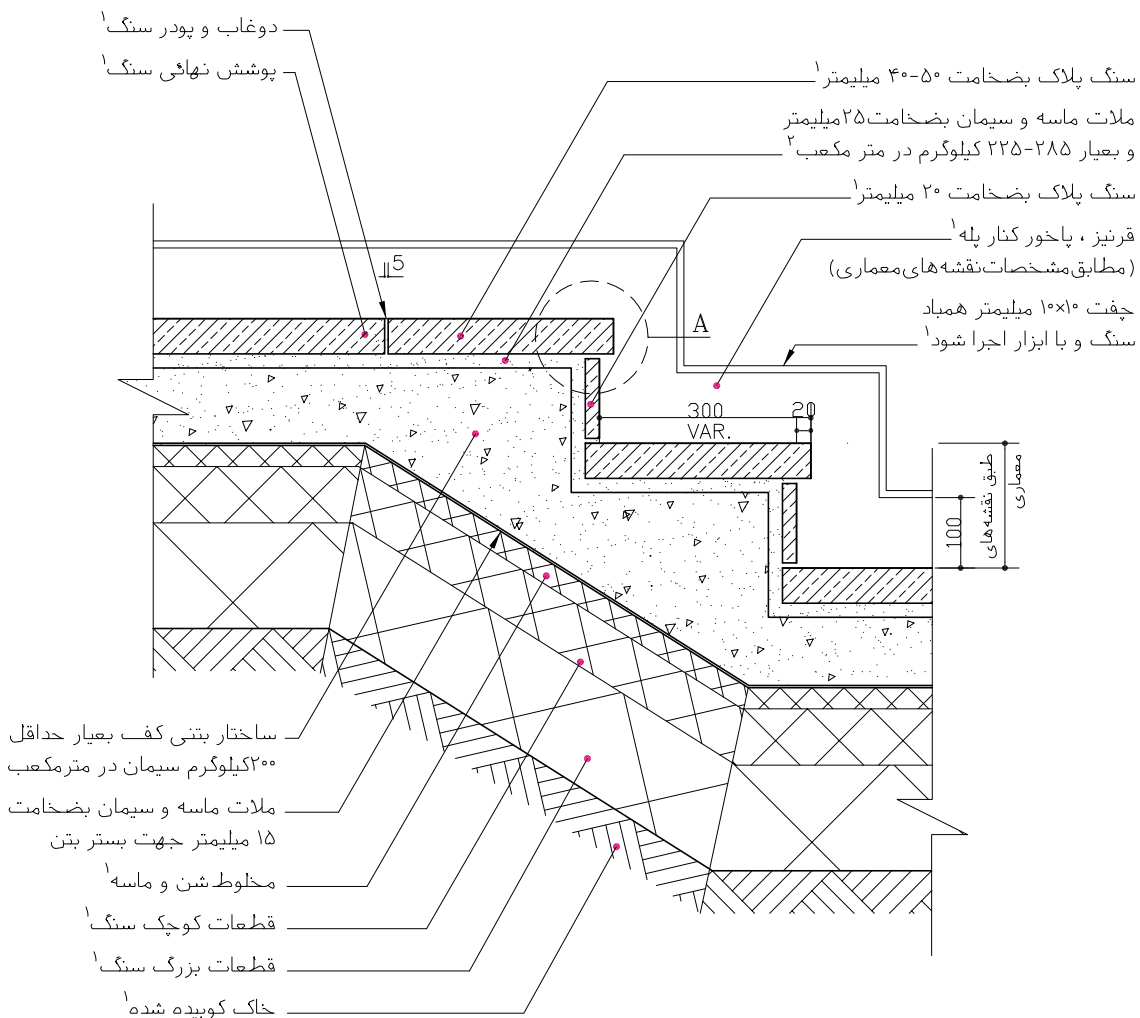 دوغاب و پودر سنگ۱
پوشش نهائی سنگ۱
سنگ پلاک بضخامت ۵۰-۴۰ میلیمتر۱
ملات ماسه و سیمان بضخامت۲۵میلیمتر
و بعیار ۲۸۵-۲۲۵ کیلوگرم در متر مکعب۲
سنگ پلاک بضخامت ۲۰ میلیمتر۱
قرنیز ، پاخور کنار پله۱
(مطابق مشخصات نقشه های معماری)
چفت ۱۰×۱۰ میلیمتر همباد
سنگ و با ابزار اجرا شود۱
5
A
300
VAR.
20
100
طبق نقشه های
معماری
ساختار بتنی کف بعیار حداقل
۲۰۰کیلوگرم سیمان در مترمکعب
ملات ماسه و سیمان بضخامت
۱۵ میلیمتر جهت بستر بتن
مخلوط شن و ماسه۱
قطعات کوچک سنگ۱
قطعات بزرگ سنگ۱
خاک کوبیده شده۱